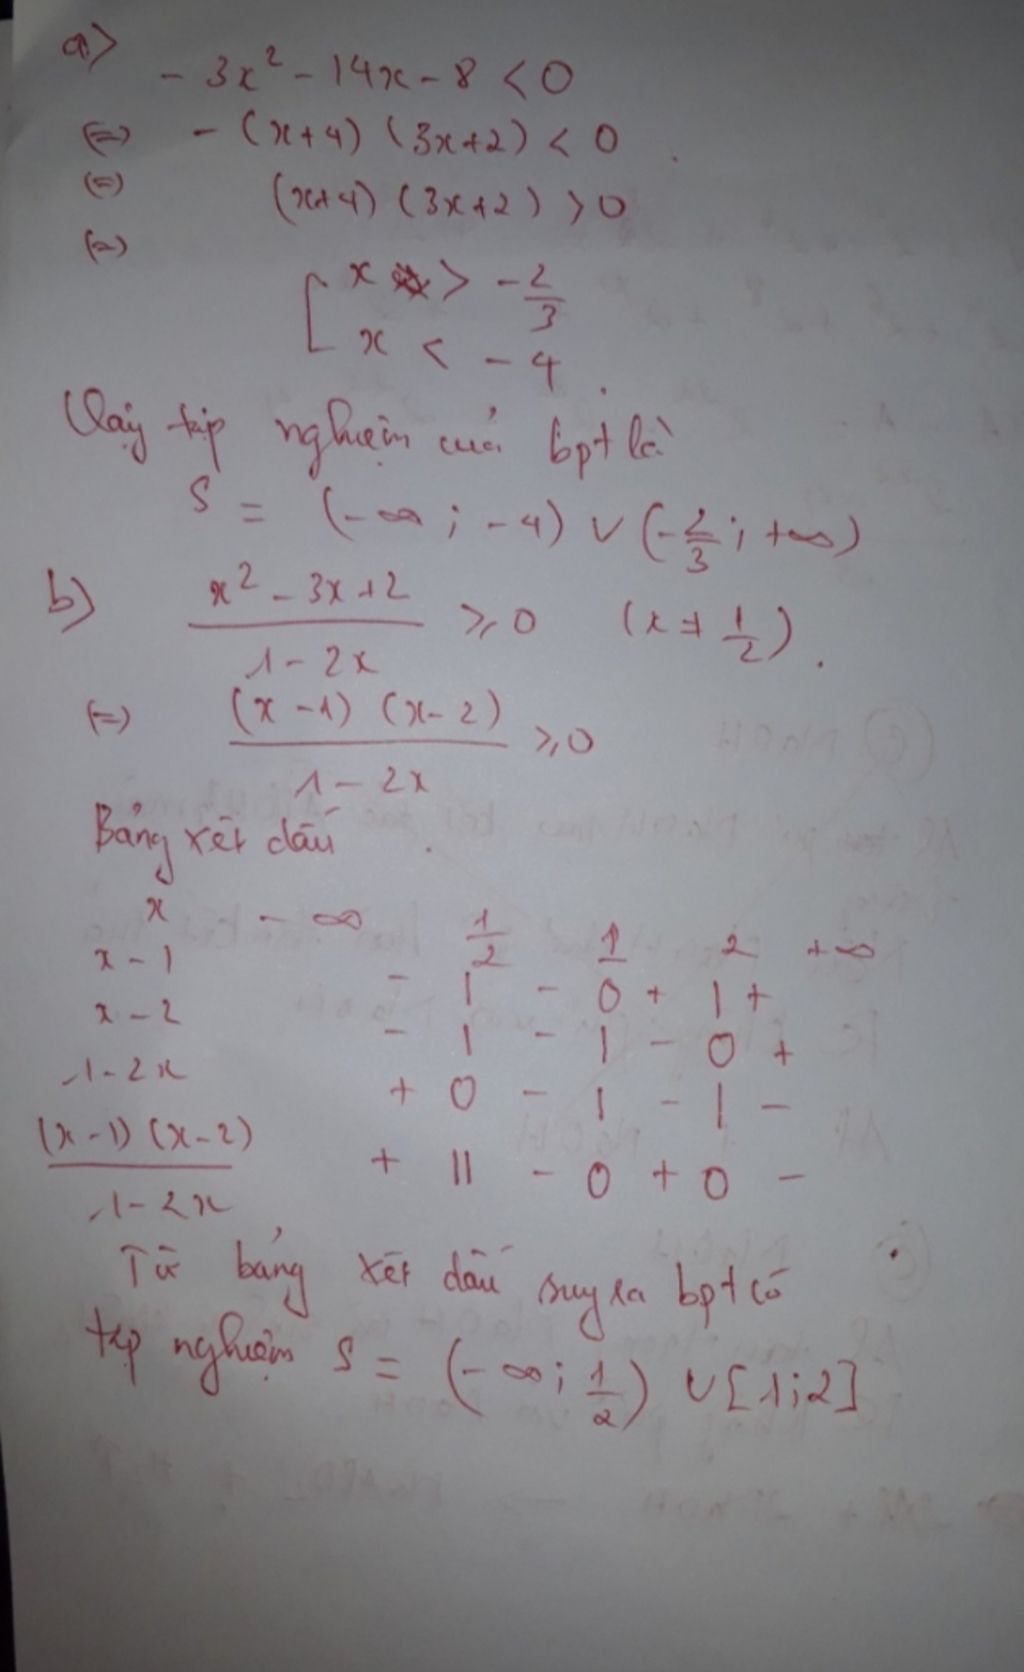 a)
- 3x² - 14x - 8 < 0
(=) - (x+4) (3x+2) < 0.
(=) (x+4) (3x+2) > 0
(=) [ x > -2/3
x < -4.
Vậy tập nghiệm của bpt là
S = (-∞ ; -4) ∪ (-2/3 ; +∞)
b) (x² - 3x + 2)/(1 - 2x) ≥ 0 (x ≠ 1/2).
(=) ((x - 1) (x - 2))/(1 - 2x) ≥ 0
Bảng xét dấu.
x -∞ 1/2 1 2 +∞
x - 1 - | - 0 + | +
x - 2 - | - | - 0 +
1 - 2x + 0 - | - | -
((x - 1) (x - 2))/(1 - 2x) + || - 0 + 0 -
Từ bảng xét dấu suy ra bpt có
tập nghiệm S = (-∞; 1/2) ∪ [1;2]